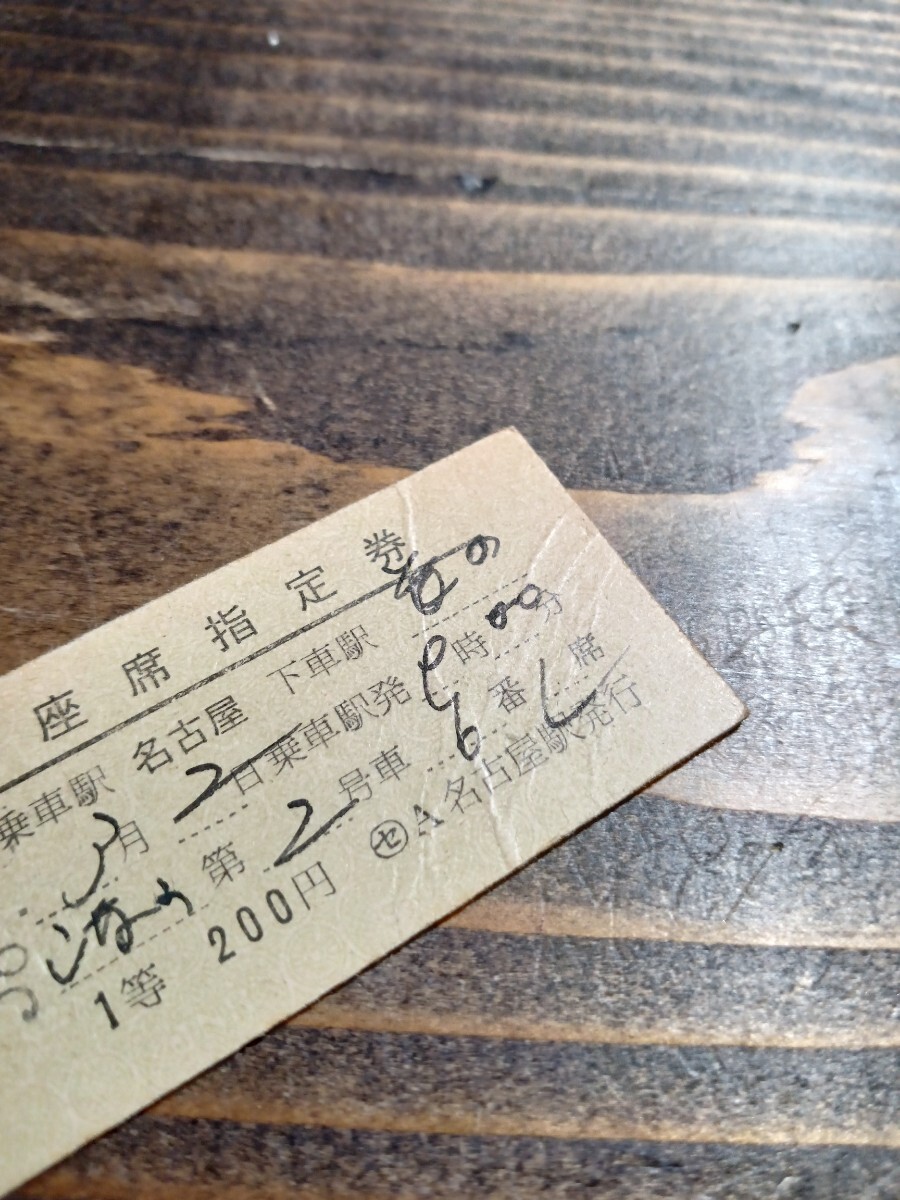 座席指定券
乗車駅 名古屋 下車駅 長の
月 2日 乗車駅発 9時00分
しなの 第 2号車 6番 席
1等 200円 ㋝A 名古屋駅発行